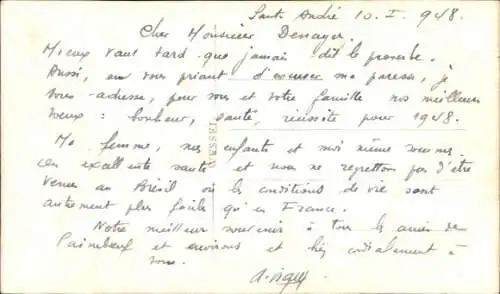 Santo André 10. I. 948.
Cher Monsieur Denayer.
Mieux vaut tard que jamais dit le proverbe.
Aussi, en vous priant d'excuser ma paresse, j'
vous adresse, pour vous et votre famille nos meilleurs
voeux: bonheur, santé, réussite pour 1948.
Ma femme, nos enfants et moi même sommes
en excellente santé et nous ne regrettons pas d'être
venus au Brésil où les conditions de vie sont
autrement plus faciles qu'en France.
Notre meilleur souvenir à tous les amis de
Paimboeuf et environs et bien cordialement à
vous.